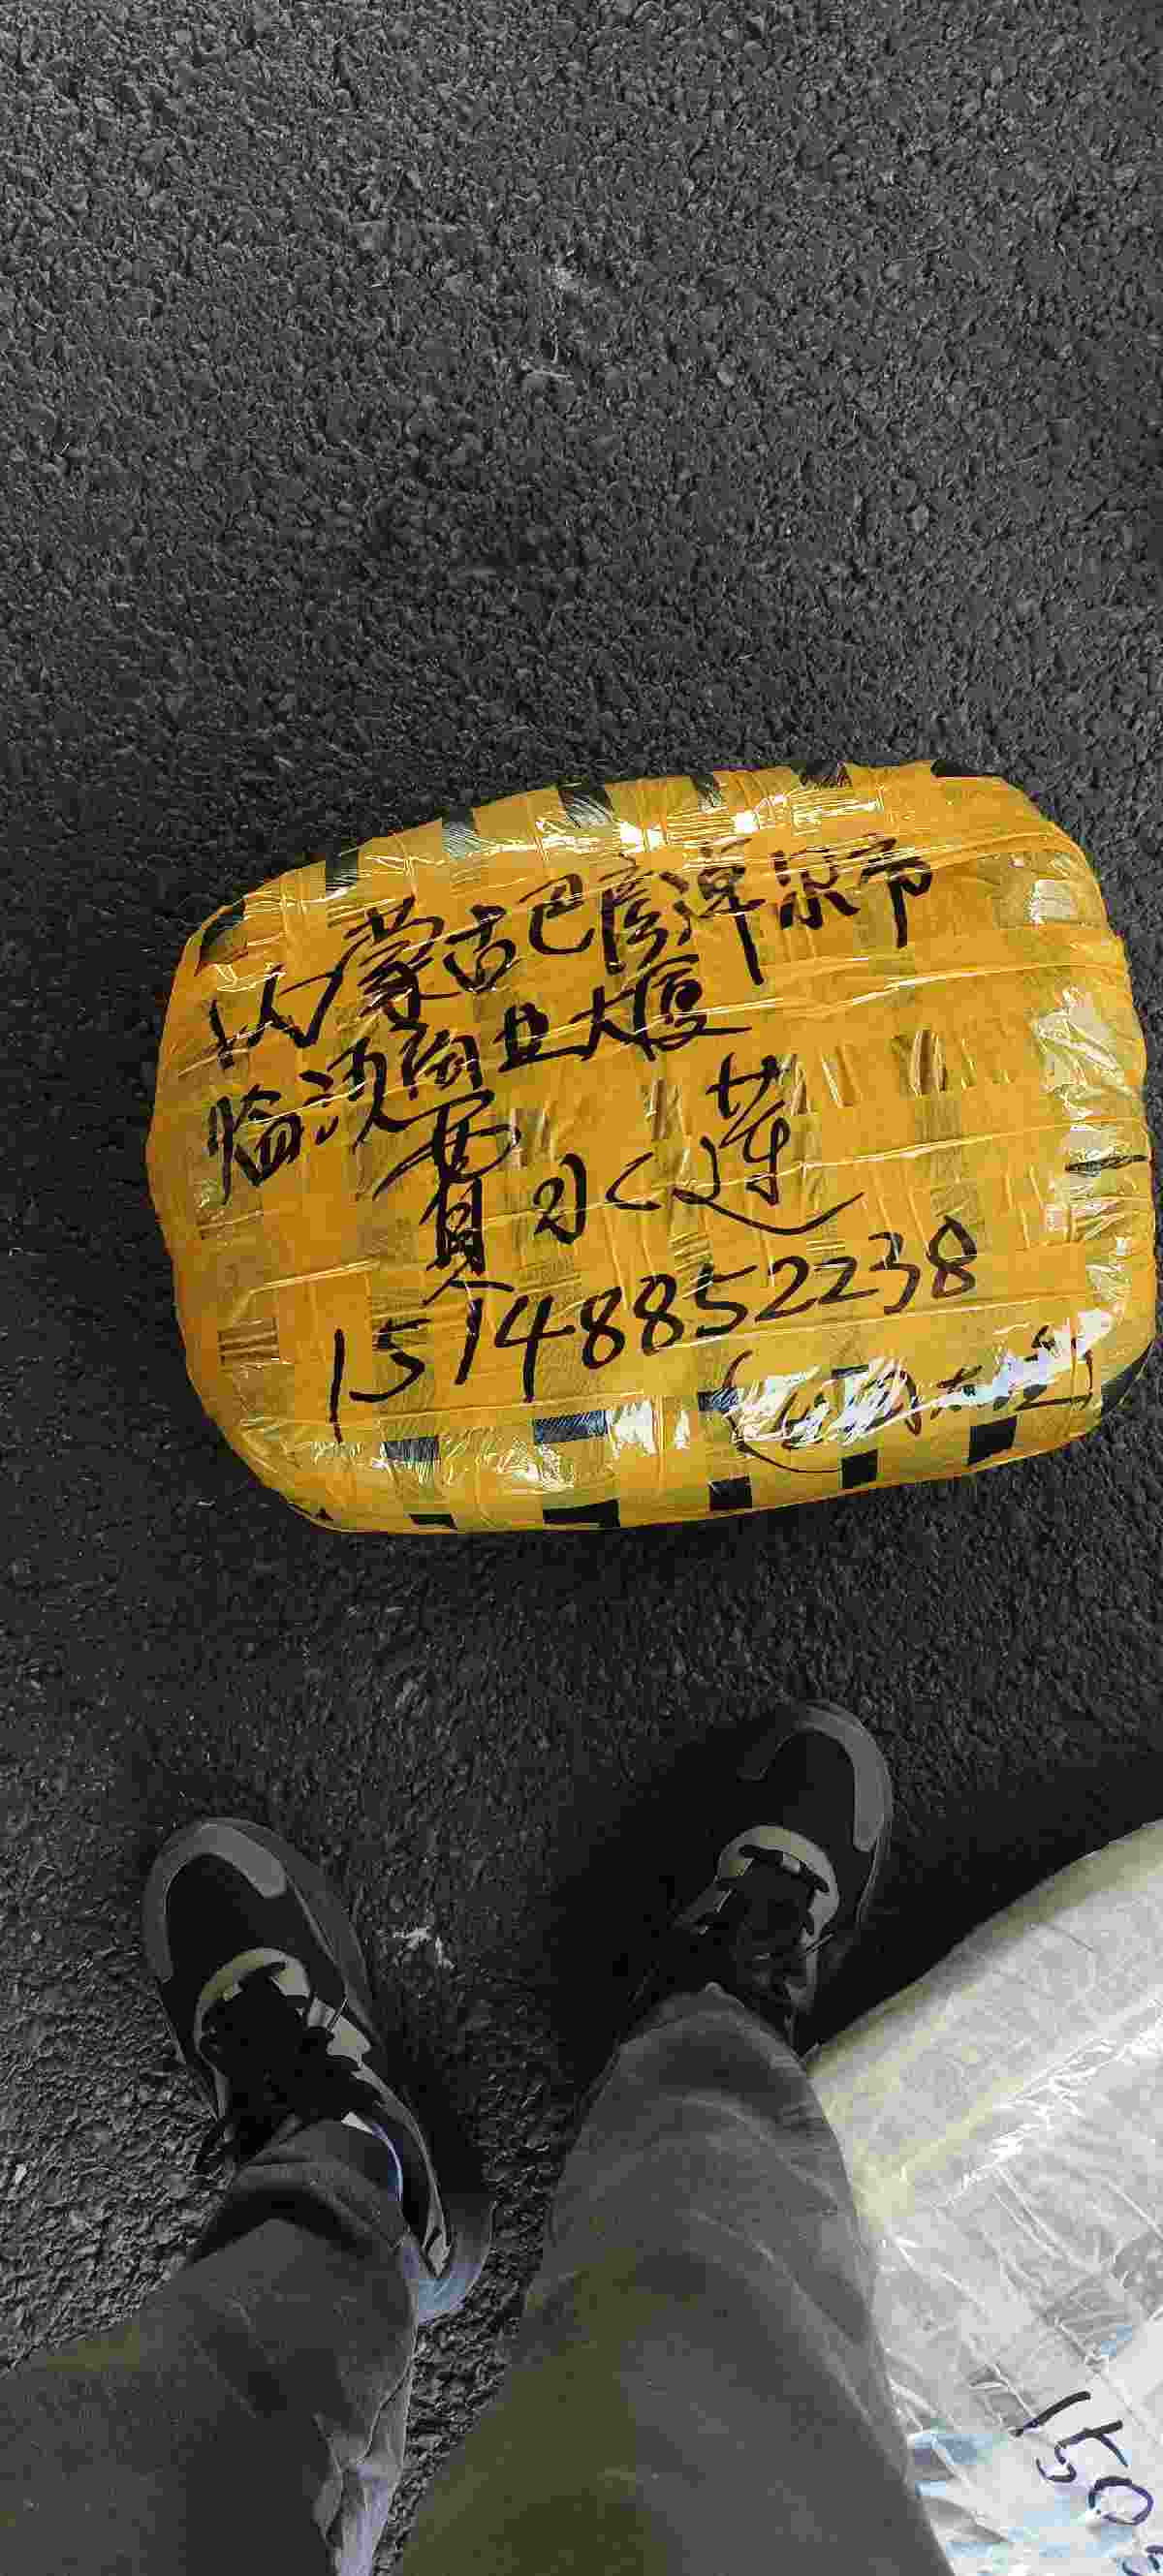 内蒙古巴彦淖尔市
临河商业大厦
贾水莲
15148852238
150